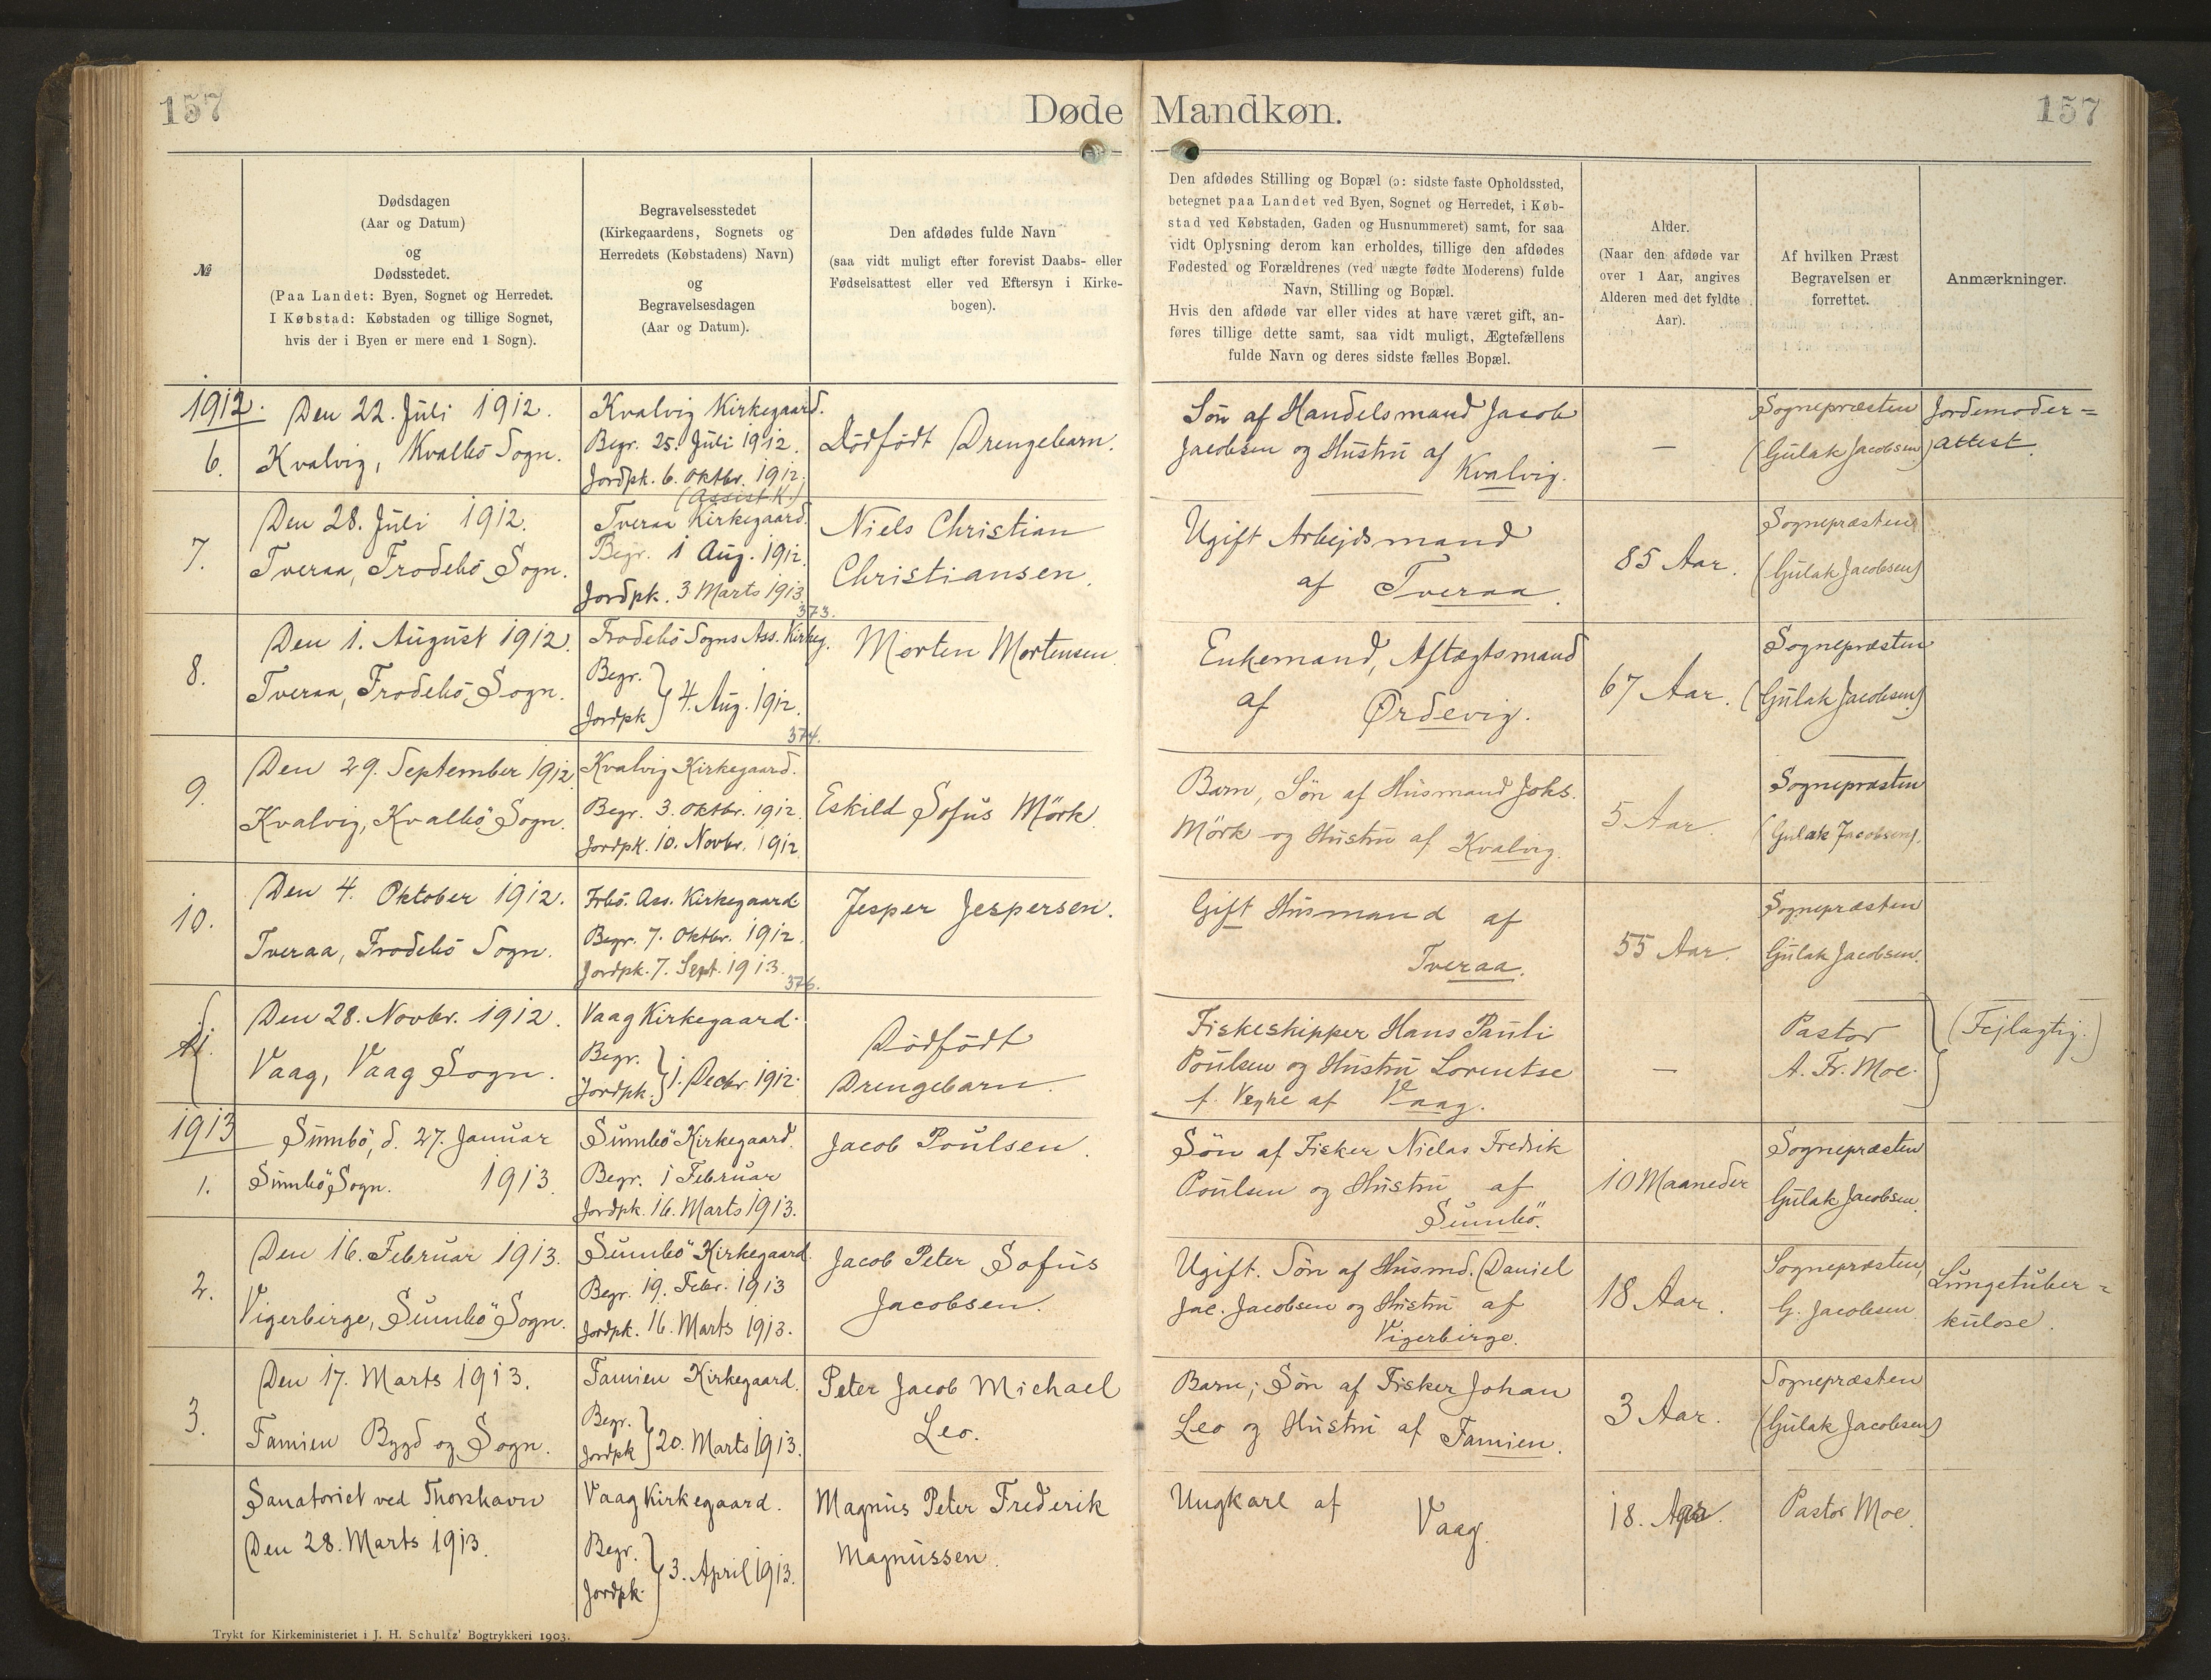 157
Døde Mandkøn.
157
№
Dødsdagen
(Aar og Datum)
og
Dødsstedet.
(Paa Landet: Byen, Sognet og Herredet.
I Købstad: Købstaden og tillige Sognet,
hvis der i Byen er mere end 1 Sogn).
Begravelsesstedet
(Kirkegaardens, Sognets og
Herredets (Købstadens) Navn)
og
Begravelsesdagen
(Aar og Datum).
Den afdødes fulde Navn
(saa vidt muligt efter forevist Daabs- eller
Fødselsattest eller ved Eftersyn i Kirke-
bogen).
Den afdødes Stilling og Bopæl (ɔ: sidste faste Opholdssted,
betegnet paa Landet ved Byen, Sognet og Herredet, i Køb-
stad ved Købstaden, Gaden og Husnummeret) samt, for saa
vidt Oplysning derom kan erholdes, tillige den afdødes
Fødested og Forældrenes (ved uægte fødte Moderens) fulde
Navn, Stilling og Bopæl.
Hvis den afdøde var eller vides at have været gift, an-
føres tillige dette samt, saa vidt muligt, Ægtefællens
fulde Navn og deres sidste fælles Bopæl.
Alder.
(Naar den afdøde var
over 1 Aar, angives
Alderen med det fyldte
Aar).
Af hvilken Præst
Begravelsen er
forrettet.
Anmærkninger.
1912.
6.
Den 22. Juli 1912.
Kvalvig, Kvalbö Sogn.
Kvalvig Kirkegaard.
Begr. 25. Juli 1912.
Jordpk. 6. Oktbr. 1912.
Dödfödt Drengebarn.
Sön af Handelsmand Jacob
Jacobsen og Hustru af
Kvalvig.
—
Sognepræsten
(Gulak Jacobsen)
Jordemoder=
attest.
7.
Den 28. Juli 1912.
Tveraa, Frodebö Sogn.
(Assist. K.)
Tveraa Kirkegaard.
Begr. 1 Aug. 1912.
Jordpk. 3. Marts 1913.
373.
Niels Christian
Christiansen.
Ugift Arbejdsmand
af Tveraa.
85 Aar.
Sognepræsten
(Gulak Jacobsen)
8.
Den 1. August 1912.
Tveraa, Frodebö Sogn.
Frodebö Sogns Ass. Kirkeg.
Begr.
Jordpk } 4. Aug. 1912.
374.
Morten Mortensen
Enkemand, Aftægtsmand
af Ørdevig.
67 Aar.
Sognepræsten
(Gulak Jacobsen)
9.
Den 29. September 1912
Kvalvig, Kvalbö Sogn.
Kvalvig Kirkegaard.
Begr. 3. Oktbr. 1912.
Jordpk. 10. Novbr. 1912
Eskild Sofus Mörk
Barn, Sön af Husmand Johs.
Mörk og Hustru af Kvalvig.
5 Aar.
Sognepræsten
(Gulak Jacobsen).
10.
Den 4. Oktober 1912.
Tveraa, Frodebö Sogn.
Frbö. Ass. Kirkegaard
Begr. 7. Oktbr. 1912.
Jordpk. 7. Sept. 1913.
376.
Jesper Jespersen.
Gift Husmand af
Tveraa.
55 Aar.
Sognepræsten
Gulak Jacobsen.
11.
Den 28. Novbr. 1912.
Vaag, Vaag Sogn.
Vaag Kirkegaard.
Begr.
Jordpk. } 1. Decbr. 1912.
Dödfödt
Drengebarn.
Fiskeskipper Hans Pauli
Poulsen og Hustru Lorentse
f. Veyhe af Vaag.
—
Pastor
A. Fr. Moe.
(Fejlagtig.)
1913
1.
Sumbö, d. 27. Januar
Sumbö Sogn. 1913.
Sumbö Kirkegaard.
Begr. 1 Februar
Jordpk. 16. Marts 1913.
Jacob Poulsen.
Sön af Fisker Nielas Fredrik
Poulsen og Hustru af
Sumbö.
10 Maaneder
Sognepræsten
Gulak Jacobsen.
2.
Den 16. Februar 1913.
Vigerbirge, Sumbö Sogn.
Sumbö Kirkegaard
Begr. 19. Febr. 1913
Jordpk. 16. Marts 1913.
Jacob Peter Sofus
Jacobsen.
Ugift. Sön af Husmd. Daniel
Jac. Jacobsen og Hustru af
Vigerbirge.
18 Aar.
Sognepræsten,
G. Jacobsen
Lungetuber=
kulose.
3.
Den 17. Marts 1913.
Famien Bygd og Sogn.
Famien Kirkegaard.
Begr.
Jordpk } 20. Marts 1913.
Peter Jacob Michael
Leo.
Barn; Sön af Fisker Johan
Leo og Hustru af Famien.
3 Aar.
Sognepræsten
(Gulak Jacobsen)
Sanatoriet ved Thorshavn
Den 28. Marts 1913.
Vaag Kirkegaard.
Begr.
Jordpk. } 3. April 1913.
Magnus Peter Frederik
Magnussen
Ungkarl af
Vaag.
18. Aar.
Pastor Moe.
Trykt for Kirkeministeriet i J. H. Schultz' Bogtrykkeri 1903.